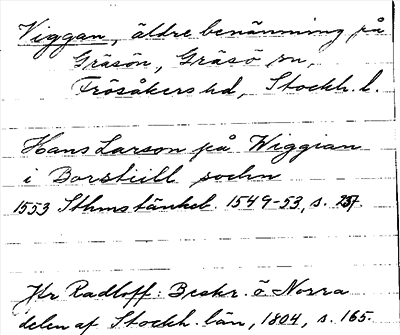 Viggan, äldre benämning på
Gräsön, Gräsö sn,
Frösåkers hd, Stockh. l.
Hans Larson på Wiggian
i Borstiill sochn
1553 Sthms tänkeb. 1549-53, s. 257.
Jfr Radloff: Beskr. ö Norra
delen af Stockh. län, 1804, s. 165.